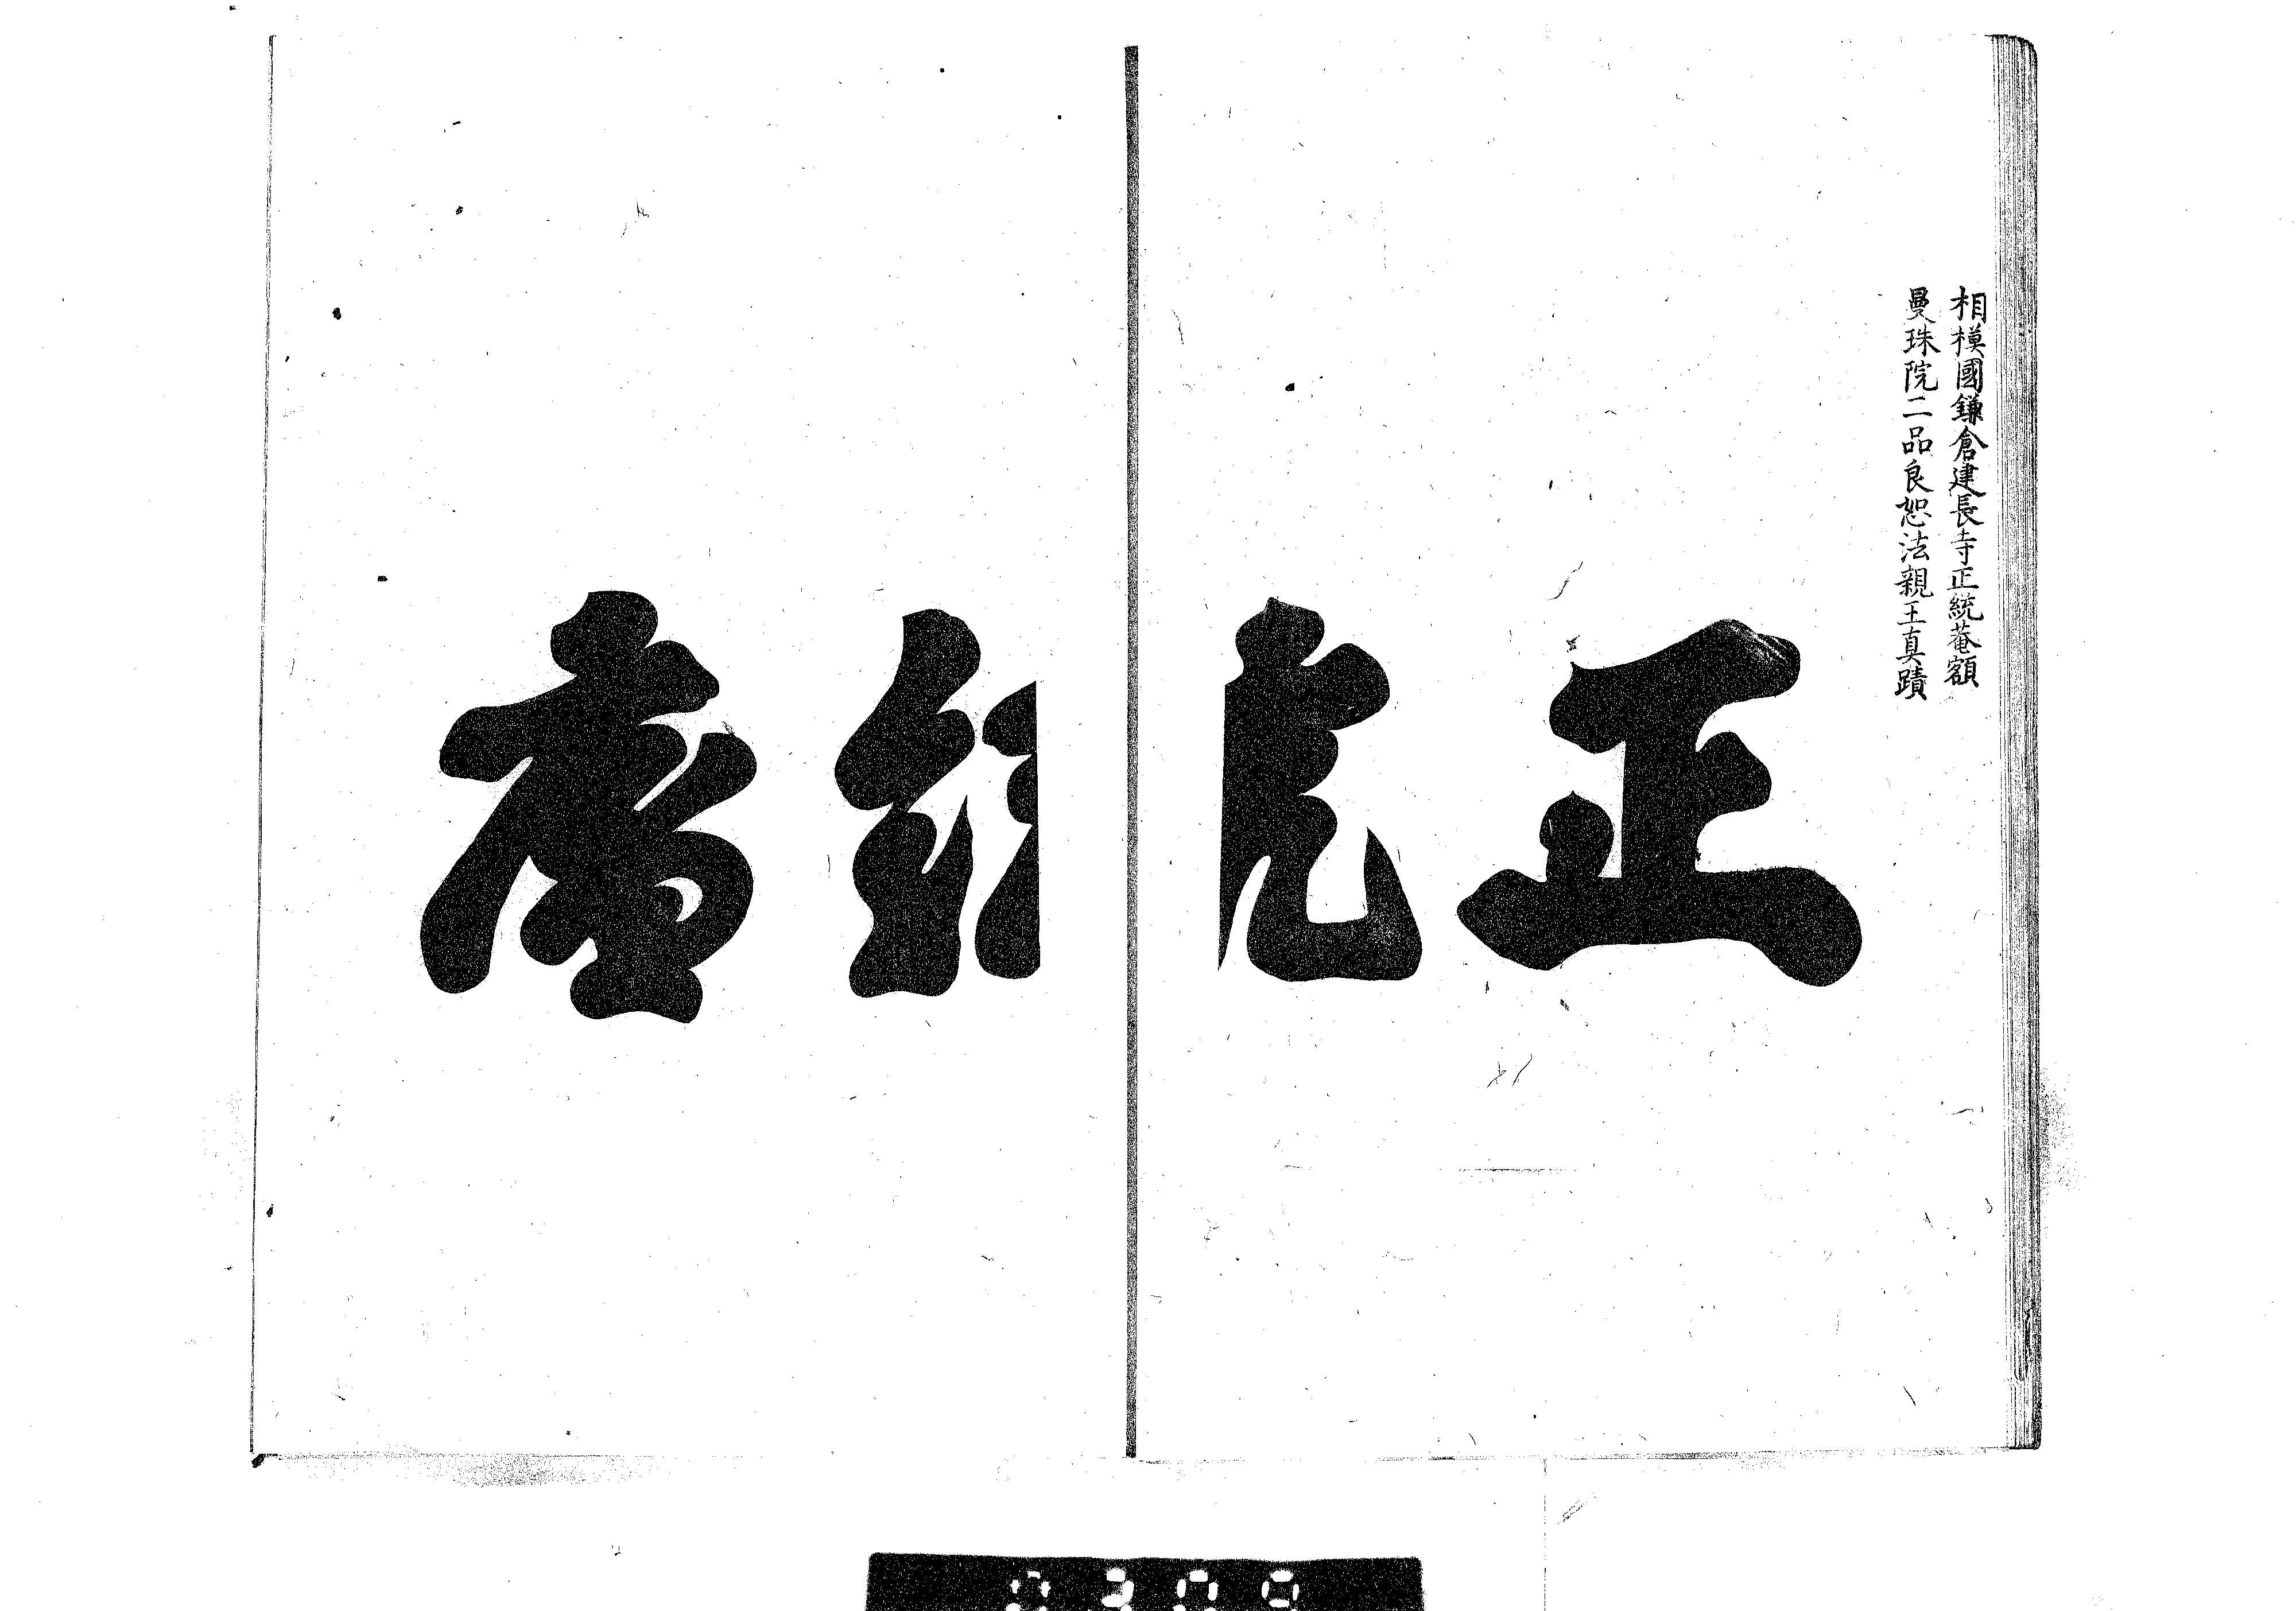 相模國鎌倉建長寺正統菴額
曼珠院二品良恕法親王真蹟
正統庵